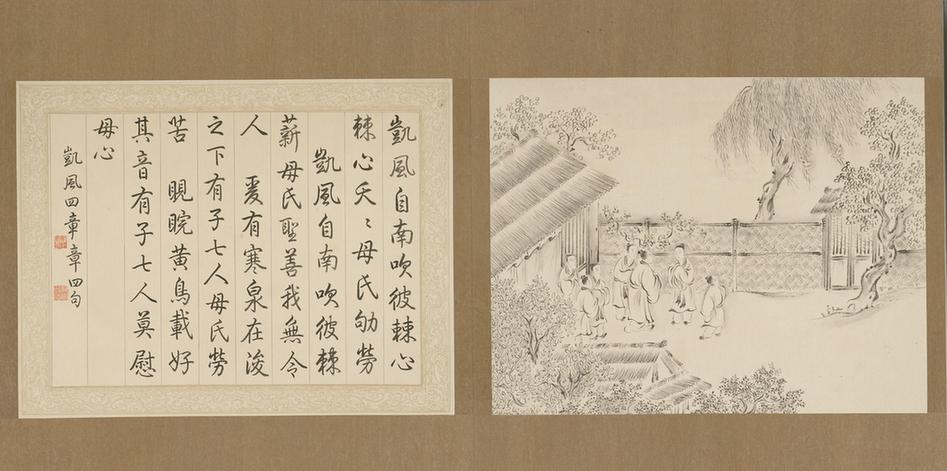 凱風自南吹彼棘心
棘心夭〻母氏劬勞
凱風自南吹彼棘
薪母氏聖善我無令
人　爰有寒泉在浚
之下有子七人母氏勞
苦　睍睆黃鳥載好
其音有子七人莫慰
母心
凱風四章章四句